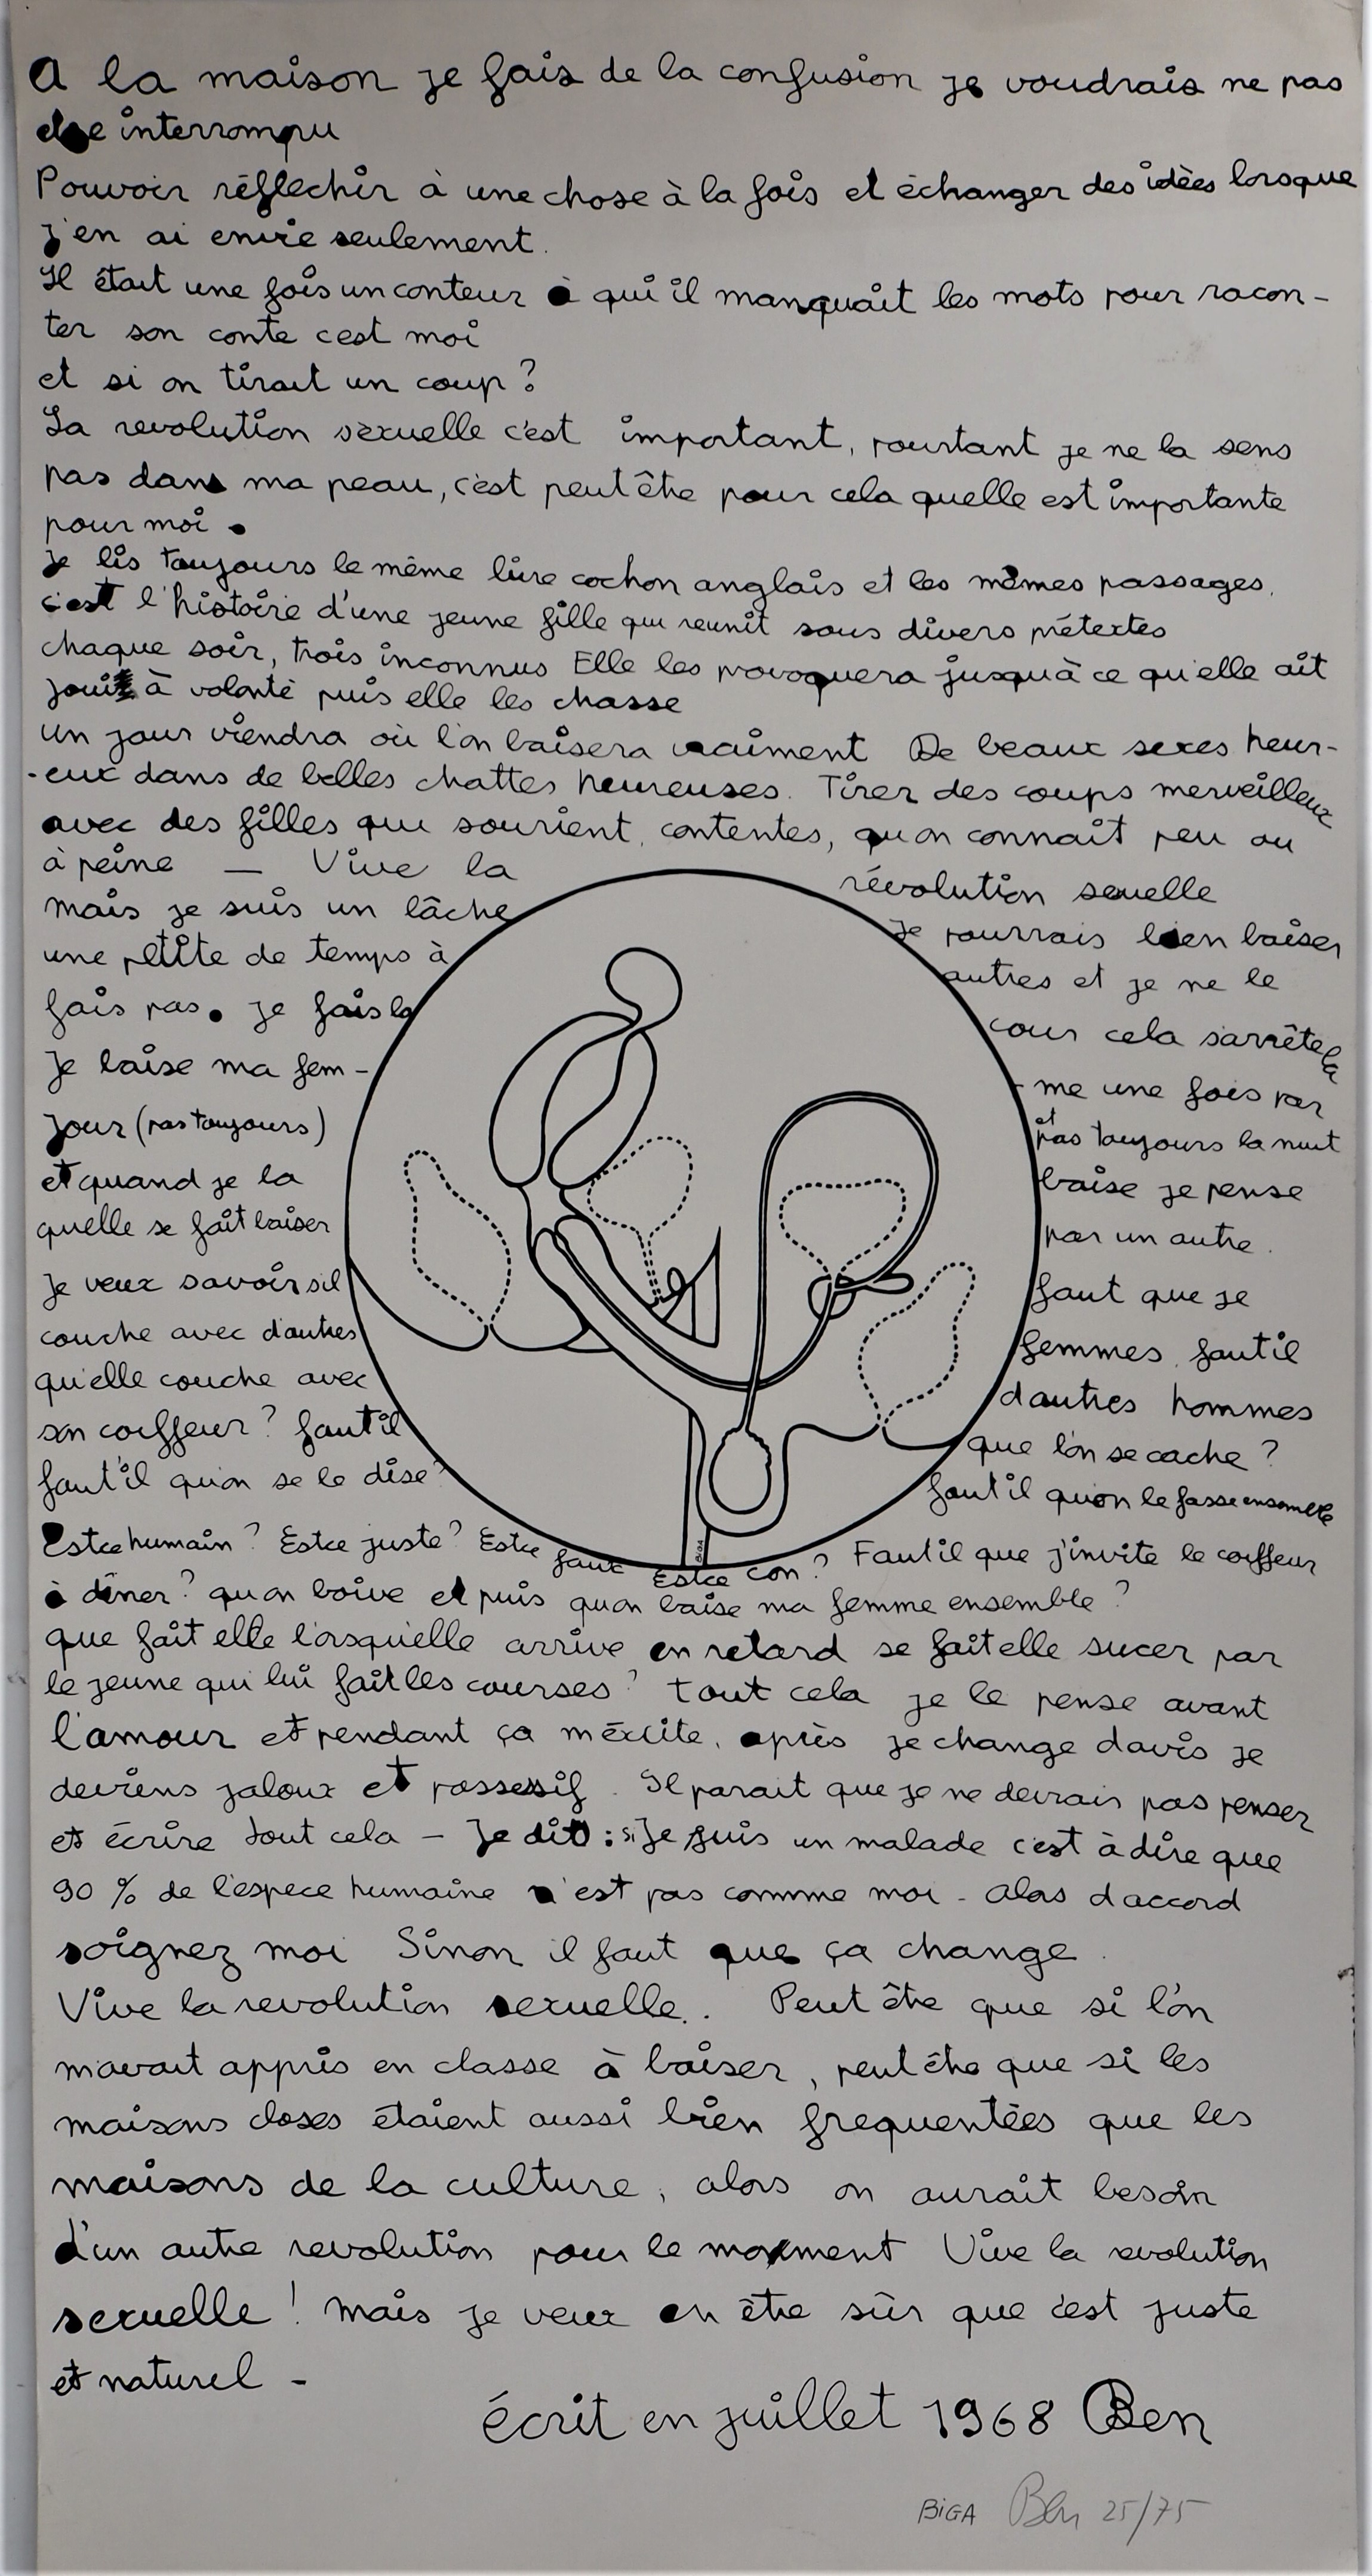 A la maison je fais de la confusion je voudrais ne pas
être interrompu
Pouvoir réflechir à une chose à la fois et échanger des idées lorsque
j'en ai envie seulement.
Il était une fois un conteur à qui il manquait les mots pour racon-
ter son conte cest moi
et si on tirait un coup ?
La revolution sexuelle c'est important, pourtant je ne la sens
pas dans ma peau, c'est peut être pour cela quelle est importante
pour moi.
je lis toujours le même livre cochon anglais et les mêmes passages.
c'est l'histoire d'une jeune fille qui reunit sous divers prétextes
chaque soir, trois inconnus Elle les provoquera jusqu'à ce qu'elle ait
joui à volonté puis elle les chasse
un jour viendra où l'on baisera vraiment De beaux sexes heur-
-eux dans de belles chattes heureuses. Tirer des coups merveilleux
avec des filles qui sourient, contentes, qu on connait peu ou
à peine — Vive la révolution sexuelle
mais je suis un lâche je pourrais bien baiser
une petite de temps à autres et je ne le
fais pas. je fais la cour cela s'arrête là
je baise ma fem- -me une fois par
jour (pas toujours) et pas toujours la nuit
et quand je la baise je pense
quelle se fait baiser par un autre.
je veux savoir sil faut que je
couche avec d'autres femmes, fautil
qu'elle couche avec dautres hommes
son coiffeur ? fautil que l'on se cache ?
faut'il qu'on se le dise ? fautil qu'on le fasse ensemble
Estce humain ? Estce juste ? Estce faux Estce con ? Fautil que j'invite le coiffeur
à diner ? qu on boive et puis quon baise ma femme ensemble ?
que fait elle lorsqu'elle arrive en retard se fait elle sucer par
le jeune qui lui fait les courses ? tout cela je le pense avant
l'amour et pendant ça méxcite, après je change davis je
deviens jaloux et possessif. Il parait que je ne devrais pas penser
et écrire tout cela – Je dit : si Je suis un malade c'est à dire que
90 % de l'espece humaine n'est pas commme moi - alors daccord
soignez moi Sinon il faut que ça change.
Vive la revolution sexuelle. Peut être que si l'on
m'avait appris en classe à baiser, peut être que si les
maisons closes étaient aussi bien frequentées que les
maisons de la culture, alors on aurait besoin
d'un autre revolution pour le moment Vive la revolution
sexuelle ! mais je veux en être sûr que c'est juste
et naturel -
BiGA
écrit en juillet 1968 Ben
BiGA Ben 25/75